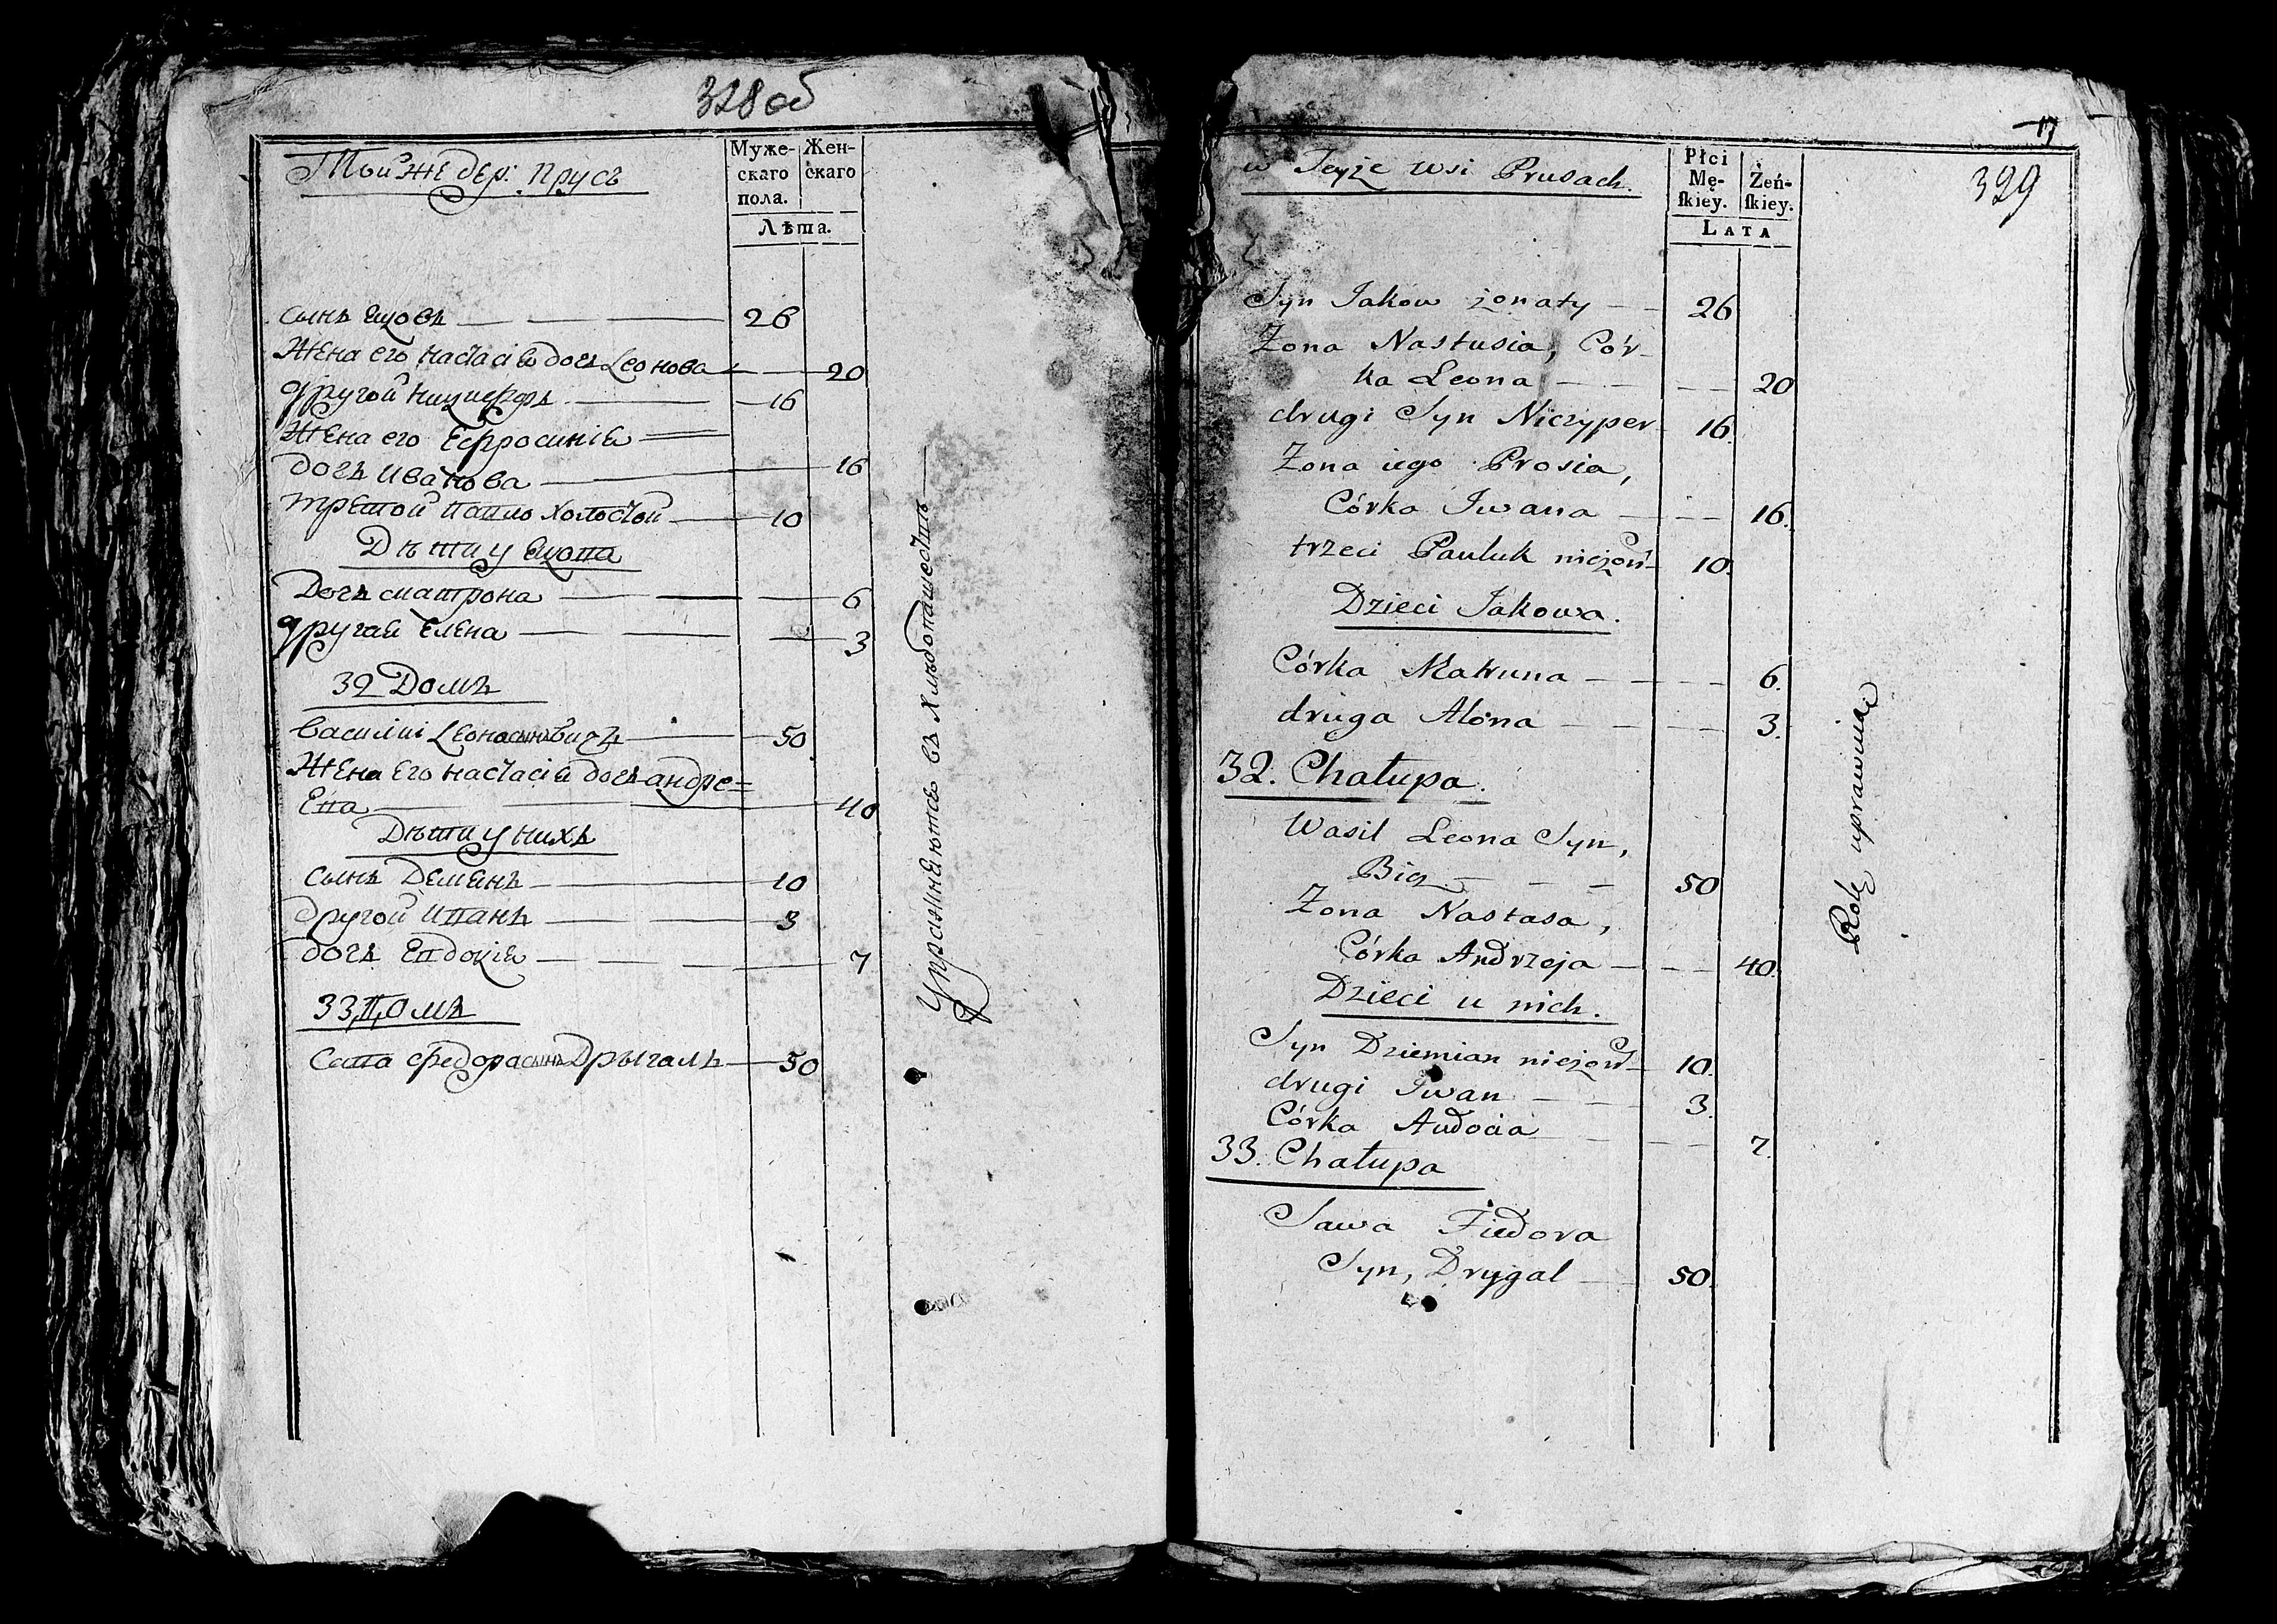 328 об
Той же дер: Прусъ
Муже-
скаго
пола.
Жен-
скаго
Лѣта.
сынъ Яковъ 26
Жена его настасія дочь Леонова 20
другой ничиферъ 16
Жена его Ефросинія
дочь Иванова 16
третой Павло холостой 10
Дѣти у Якова
Дочь матрона 6
другая Елена 3
32 Домъ
Василій Леона сынъ Бичъ 50
Жена его настасія дочь андре=
ева 40
Дѣти у нихъ
сынъ Демянъ 10
другой Иванъ 3
дочь Евдокія 7
33 Домъ
Сава Федора сынъ Дрыгаль 50
Упражняются въ хлѣбопашествѣ
17
329
w Teyże wsi Prusach.
Płci
Mę-
skiey.
Żeń-
skiey.
LATA
Syn Jakow żonaty 26
Żona Nastusia, Cór-
ka Leona 20
drugi Syn Niczyper 16
Żona iego Prosia,
Córka Iwana 16.
trzeci Pauluk nieżon 10.
Dzieci Jakowa.
Córka Matruna 6.
druga Alóna 3.
32. Chałupa.
Wasil Leona Syn,
Bicz 50
Żona Nastasa,
Córka Andrzeja 40.
Dzieci u nich.
Syn Dziemian nieżon 10.
drugi Iwan 3.
Córka Audocia 7.
33. Chałupa
Sawa Fiedora
Syn, Drygal 50.
Rolę uprawiaią